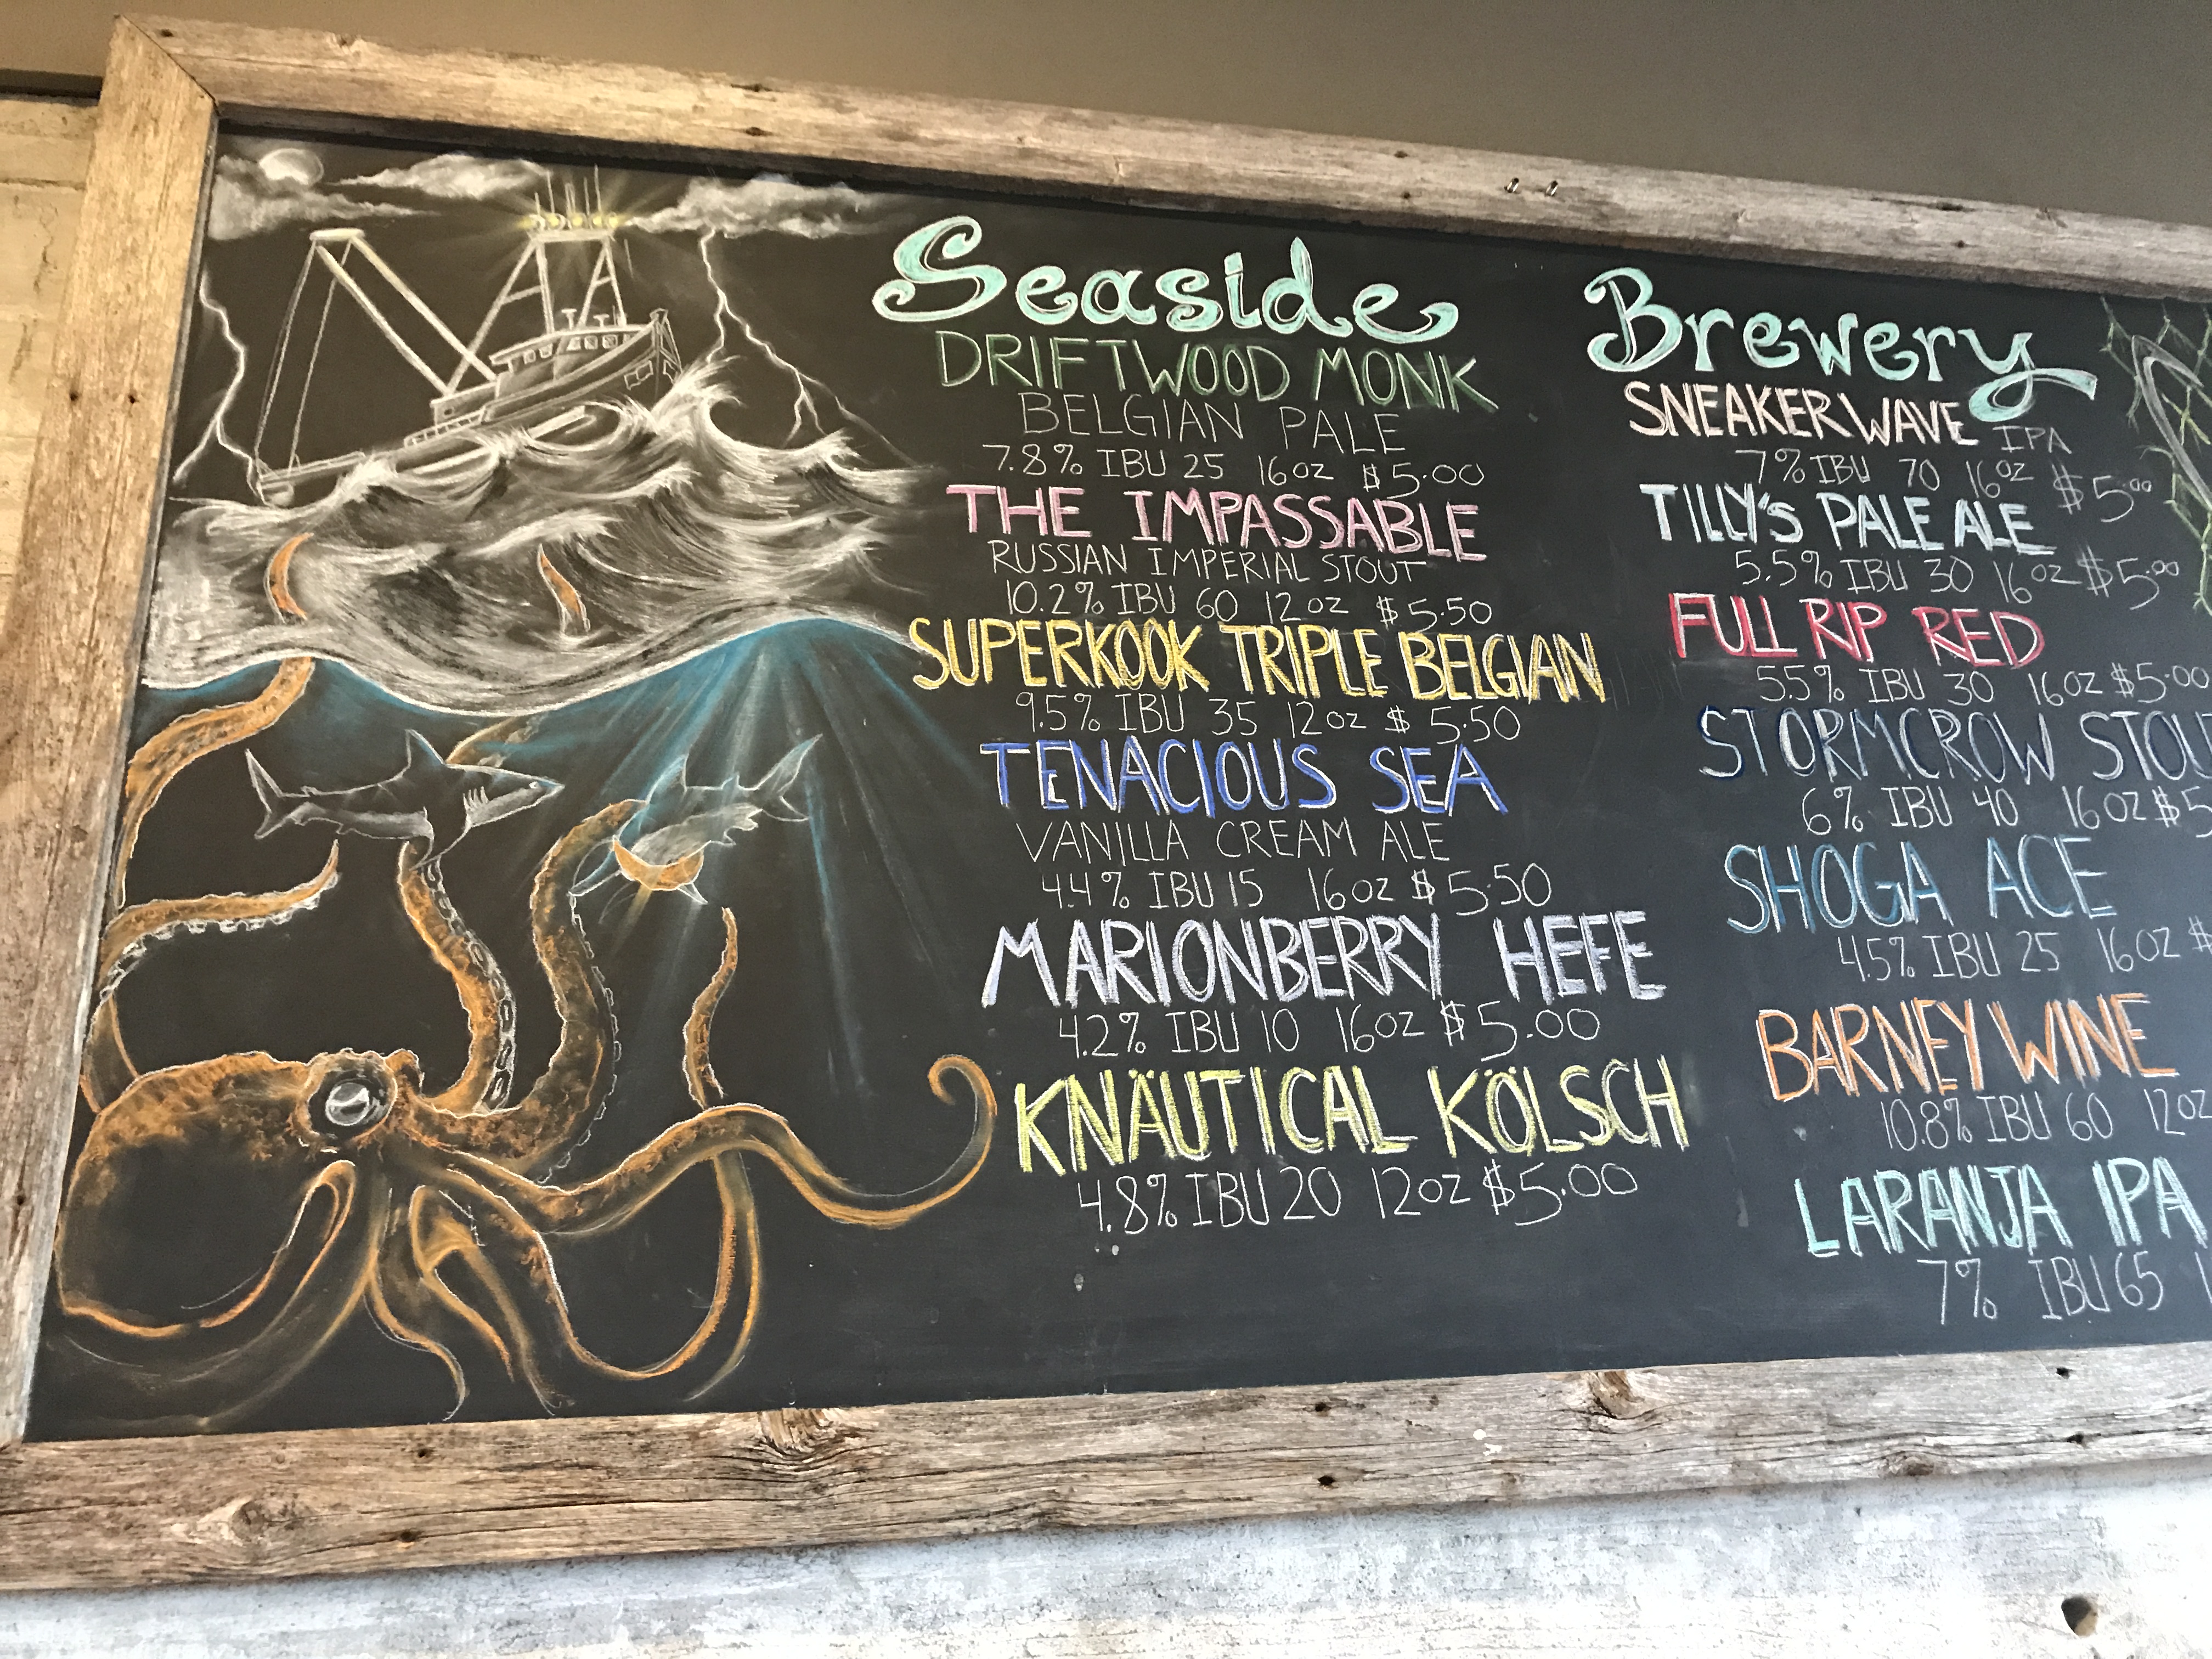 Seaside Brewery
DRIFTWOOD MONK
BELGIAN PALE
7.8% IBU 25 16oz $5.00
THE IMPASSABLE
RUSSIAN IMPERIAL STOUT
10.2% IBU 60 12oz $5.50
SUPERKOOK TRIPLE BELGIAN
9.5% IBU 35 12oz $5.50
TENACIOUS SEA
VANILLA CREAM ALE
4.4% IBU 15 16oz $5.50
MARIONBERRY HEFE
4.2% IBU 10 16oz $5.00
KNÄUTICAL KÖLSCH
4.8% IBU 20 12oz $5.00
SNEAKERWAVE IPA
7% IBU 70 16oz $5.00
TILLY'S PALE ALE
5.5% IBU 30 16oz $5.00
FULL RIP RED
5.5% IBU 30 16oz $5.00
STORMCROW STOU
6% IBU 40 16oz $5
SHOGA ACE
4.5% IBU 25 16oz $
BARNEY WINE
10.8% IBU 60 12oz
LARANJA IPA
7% IBU 65